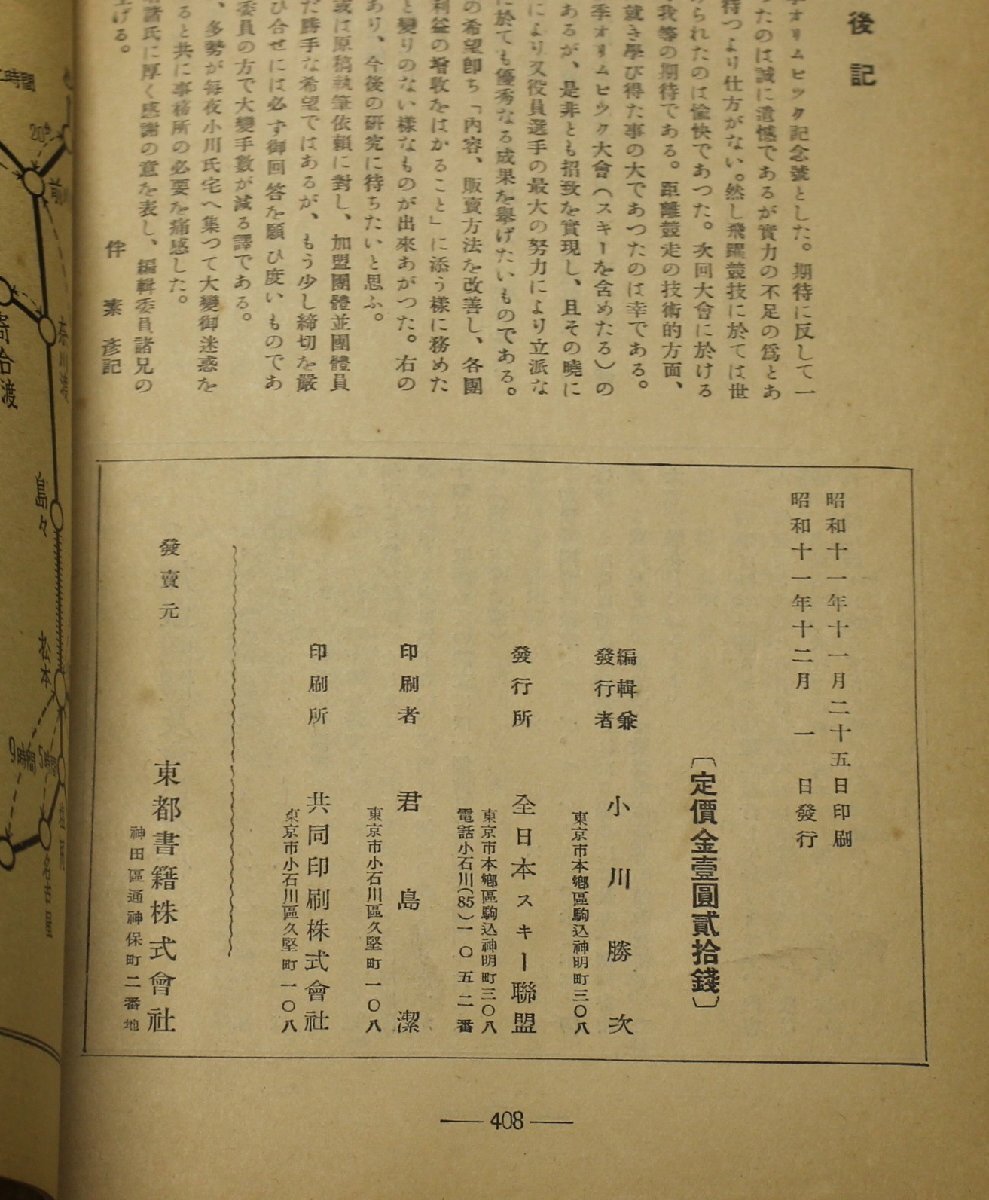 後記
季オリムピック記念號とした。期待に反して一
つたのは誠に遺憾であるが實力の不足の爲とあ
待つより仕方がない。然し飛躍競技に於ては世
められたのは愉快であつた。次回大會に於ける
我等の期待である。距離競走の技術的方面、
就き學び得た事の大であつたのは幸である。
季オリムピック大會(スキーを含めたる)の
あるが、是非とも招致を實現し、且その曉に
により又役員選手の最大の努力により立派な
に於ても優秀なる成果を擧げたいものである。
の希望卽ち「內容、販賣方法を改善し、各團
利益の增收をはかること」に添う樣に務めた
と變りのない樣なものが出來あがつた。右の
あり、今後の研究に待ちたいと思ふ。
或は原稿執筆依賴に對し、加盟團體並團體員
だ勝手な希望ではあるが、もう少し締切を嚴
ひ合せには必ず御回答を願ひ度いものであ
委員の方で大變手數が減る譯である。
、多勢が每夜小川氏宅へ集つて大變御迷惑を
ると共に事務所の必要を痛感した。
諸氏に厚く感謝の意を表し、編輯委員諸兄の
上げる。
伴素彥記
昭和十一年十一月二十五日印刷
昭和十一年十二月一日發行
〔定價金壹圓貳拾錢〕
編輯兼
發行者
小川勝次
東京市本鄕區駒込神明町三〇八
發行所
全日本スキー聯盟
東京市本鄕區駒込神明町三〇八
電話小石川(85)一〇五二番
印刷者
君島潔
東京市小石川區久堅町一〇八
印刷所
共同印刷株式會社
東京市小石川區久堅町一〇八
發賣元
東都書籍株式會社
神田區通神保町二番地
— 408 —
時間
20
前
奈川渡
寄合渡
島々
松本
9時間
5時間
名古屋